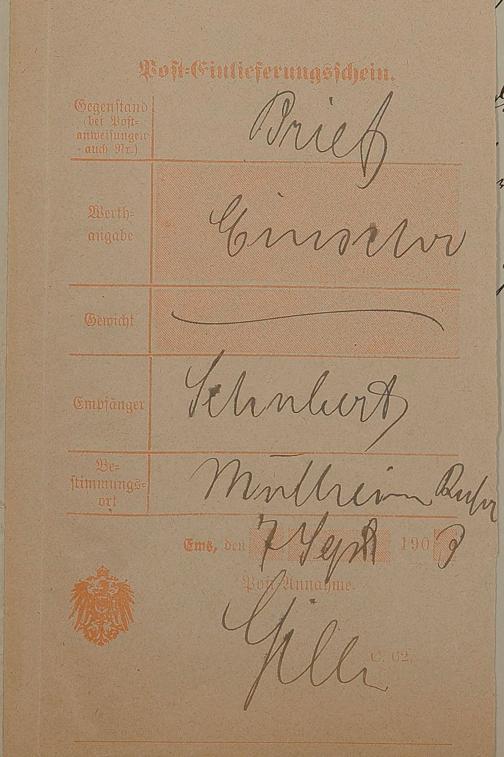 Post-Einlieferungsschein.
Gegenstand
(bei Post-
anweisungen
auch Nr.)
Brief
Werth-
angabe
Einschr
Gewicht
Empfänger
Schubert
Be-
stimmungs-
ort
Mülheim Ruhr
Ems, den 7 Sept 190
Post-Annahme.
C. 62.